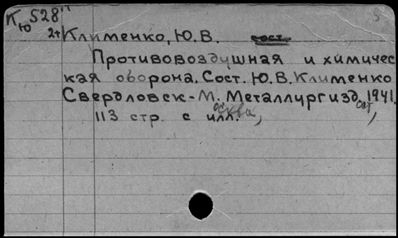 К 528"
ю
2+ Клименко, Ю.В. сост.
Противовоздушная и химичес
кая оборона. Сост. Ю.В. Клименко
Свердловск-М. Металлургизд 1941.
113 стр. с илл.,